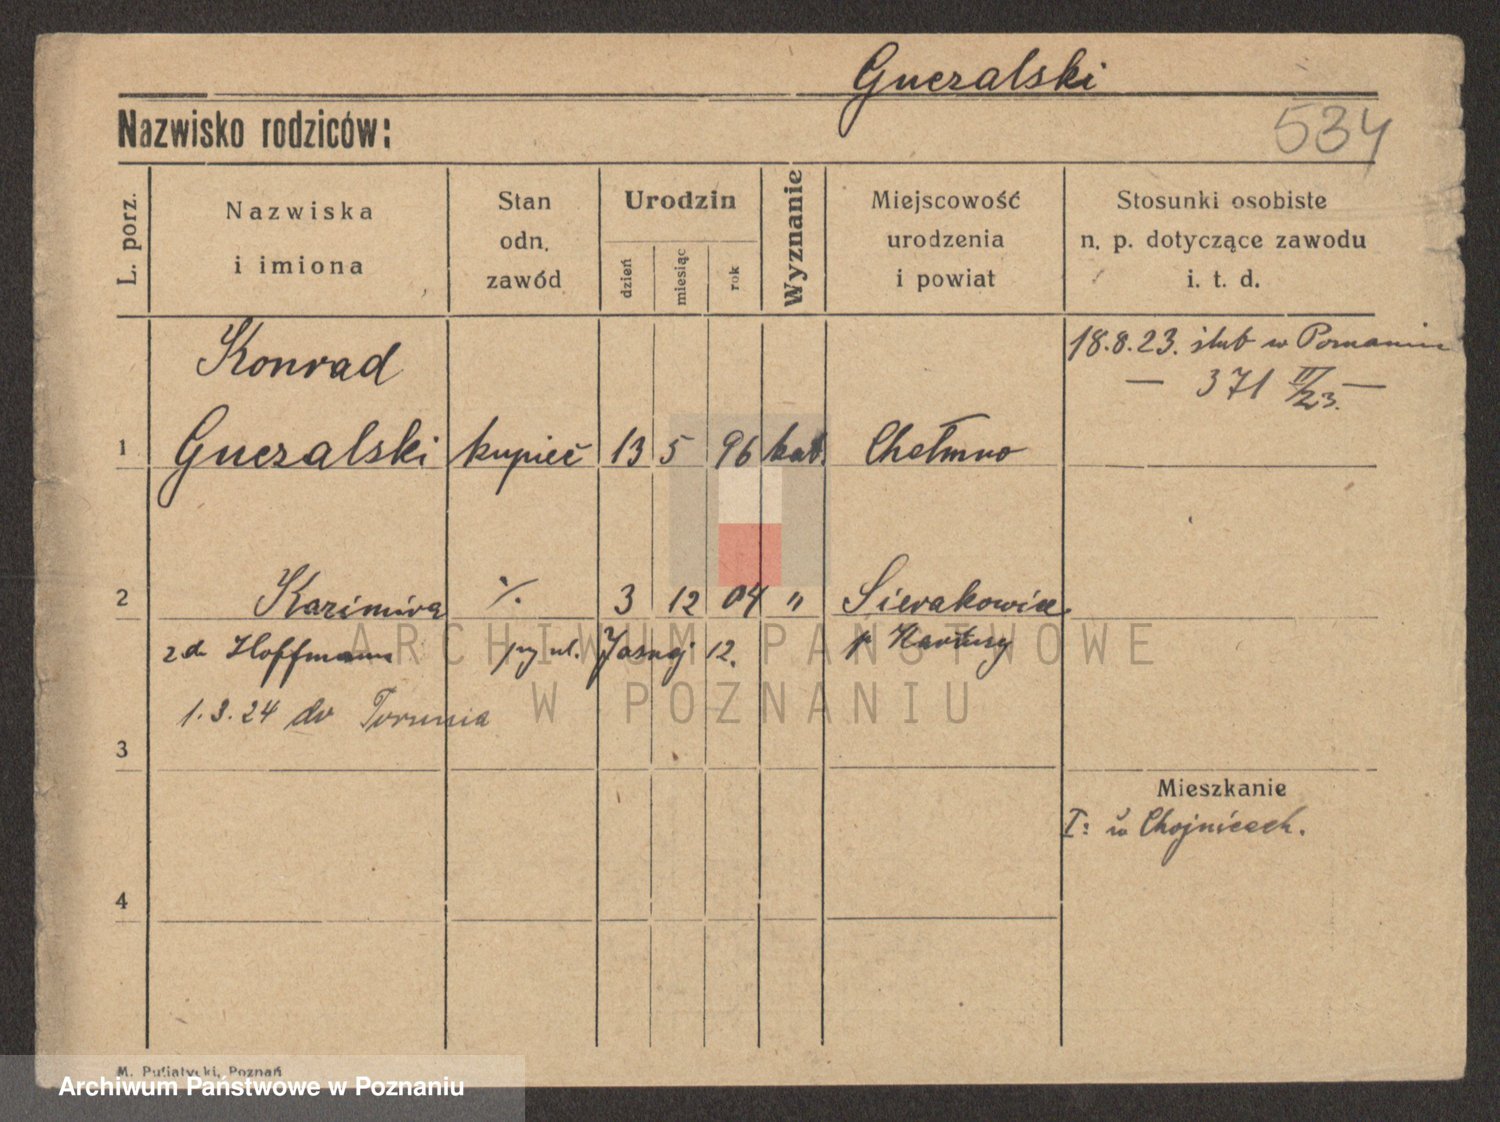 Guczalski
534
Nazwisko rodziców:
L. porz.
Nazwiska
i imiona
Stan
odn.
zawód
Urodzin
dzień
miesiąc
rok
Wyznanie
Miejscowość
urodzenia
i powiat
Stosunki osobiste
n. p. dotyczące zawodu
i. t. d.
Konrad
18.8.23. ślub w Poznaniu
— 371 II/23. —
1 Guczalski kupiec 13 5 96 kat. Chełmno
2 Kazimira ./. 3 12 04 " Sierakowice
zd. Hoffmann przy ul. Jasnej 12. p Kartuzy
1.3.24 do Torunia
3
Mieszkanie
I: w Chojnicach.
4
M. Putiatycki, Poznań
ARCHIWUM PAŃSTWOWE
W POZNANIU
Archiwum Państwowe w Poznaniu